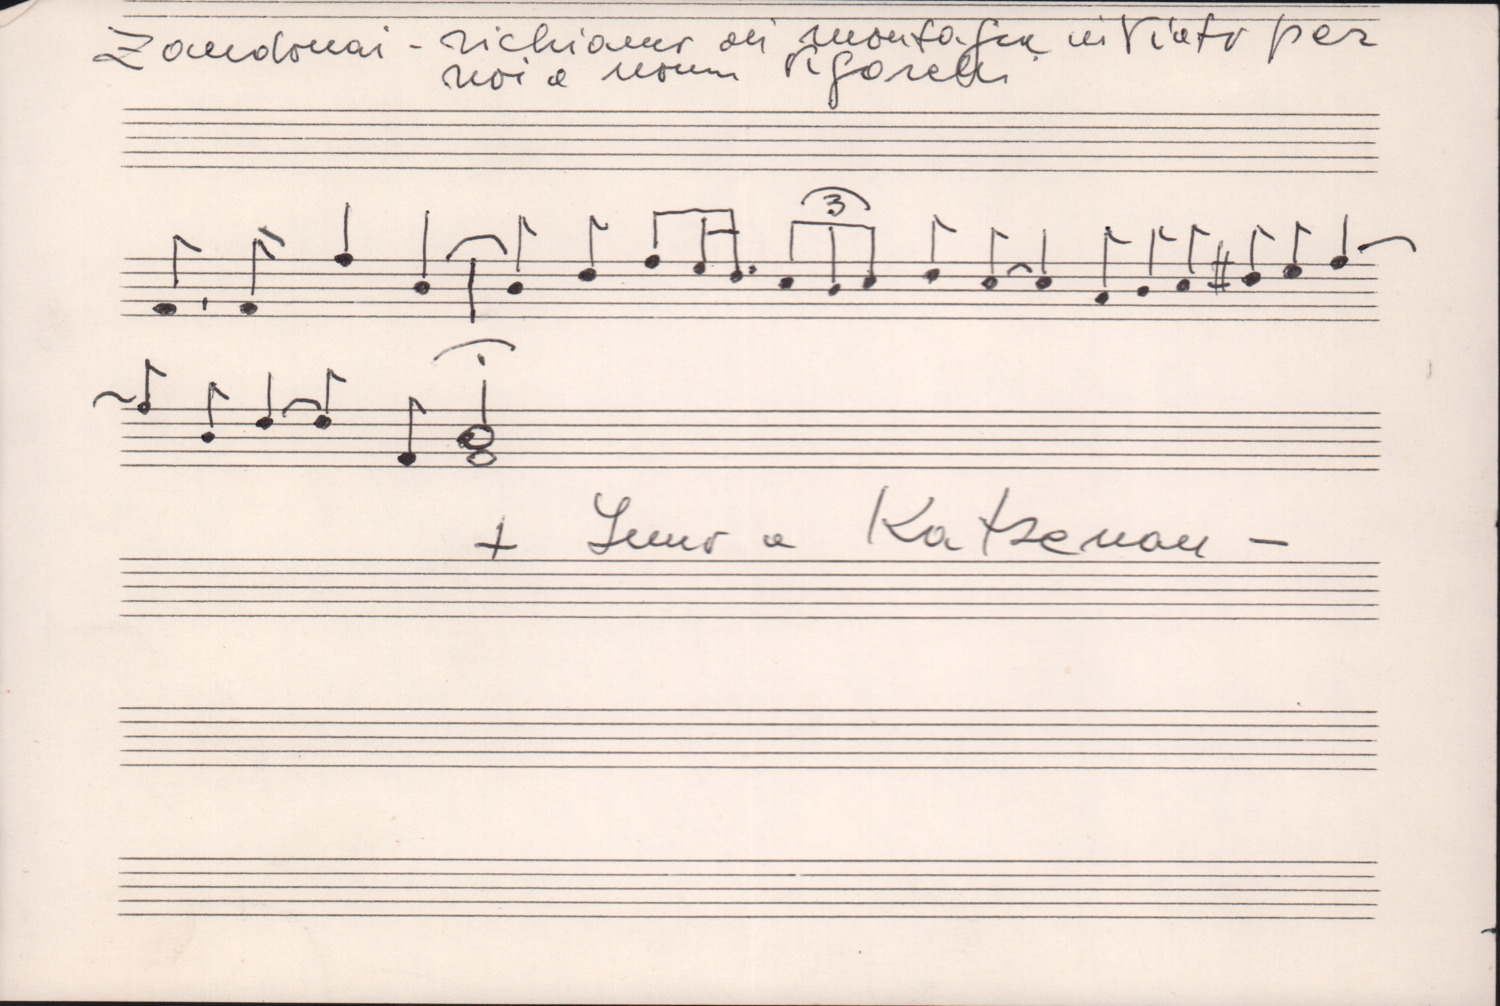 Zandonai - richiamo di montagna inviato per
noi a nonna Rigorelli
3
+ Inno a Katzenau -